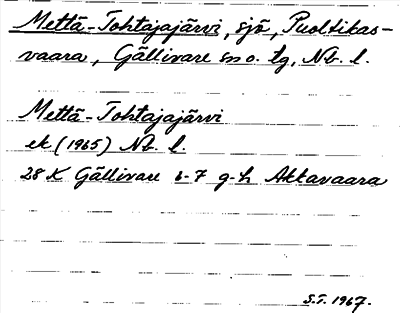 Mettä-Tohtajajärvi, sjö, Puoltikas-
vaara, Gällivare sn o. tg, Nb. l.
Mettä-Tohtajajärvi
ek (1965) Nb. l.
28 K Gällivare 6-7 g-h Aktavaara
S.T. 1967.